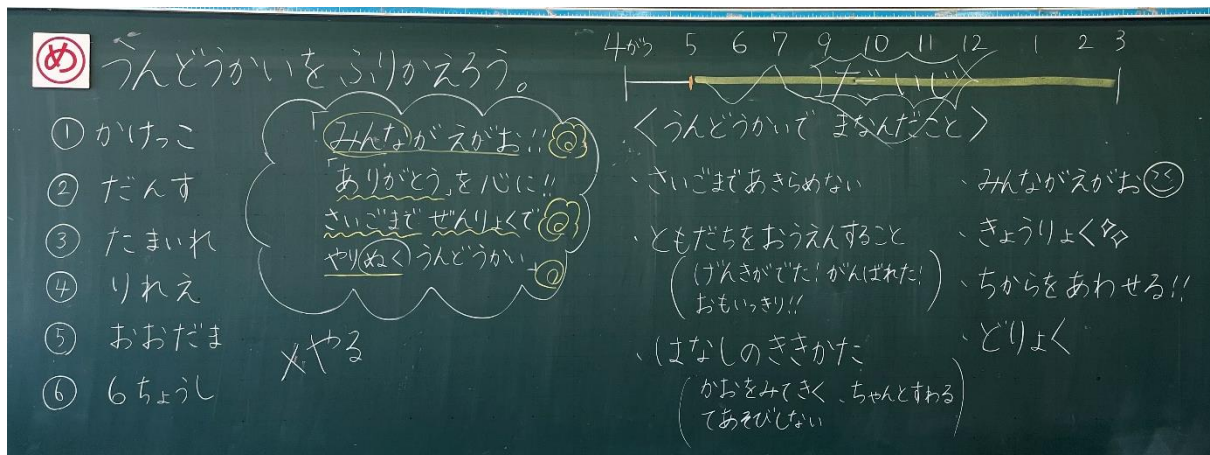 め うんどうかいを ふりかえろう。
① かけっこ
② だんす
③ たまいれ
④ りれえ
⑤ おおだま
⑥ 6ちょうし
「みんながえがお!!
「ありがとう」を心に!!
さいごまで ぜんりょくで
やりぬくうんどうかい」
×やる
4がつ 5 6 7 9 10 11 12 1 2 3
だいじ
〈うんどうかいで まなんだこと〉
・さいごまであきらめない
・ともだちをおうえんすること
(げんきがでた! がんばれた!
おもいっきり!!)
・はなしのききかた
(かおをみてきく、ちゃんとすわる
てあそびしない)
・みんながえがお
・きょうりょく
・ちからをあわせる!!
・どりょく